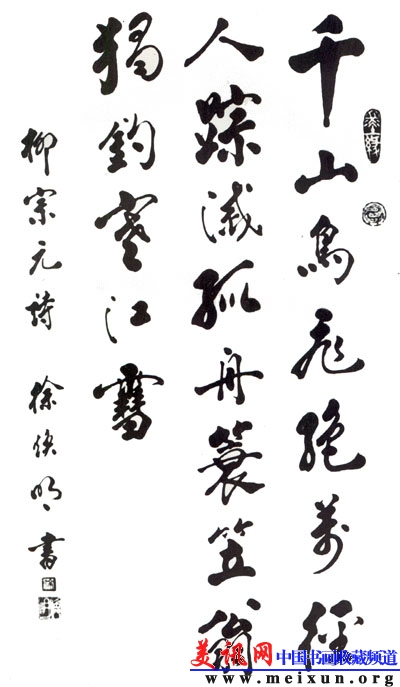 千山鳥飛絕萬徑
人踪滅孤舟簑笠翁
獨釣寒江雪
柳宗元詩 徐明書
美讯网 中国书画收藏频道
www.meixun.org